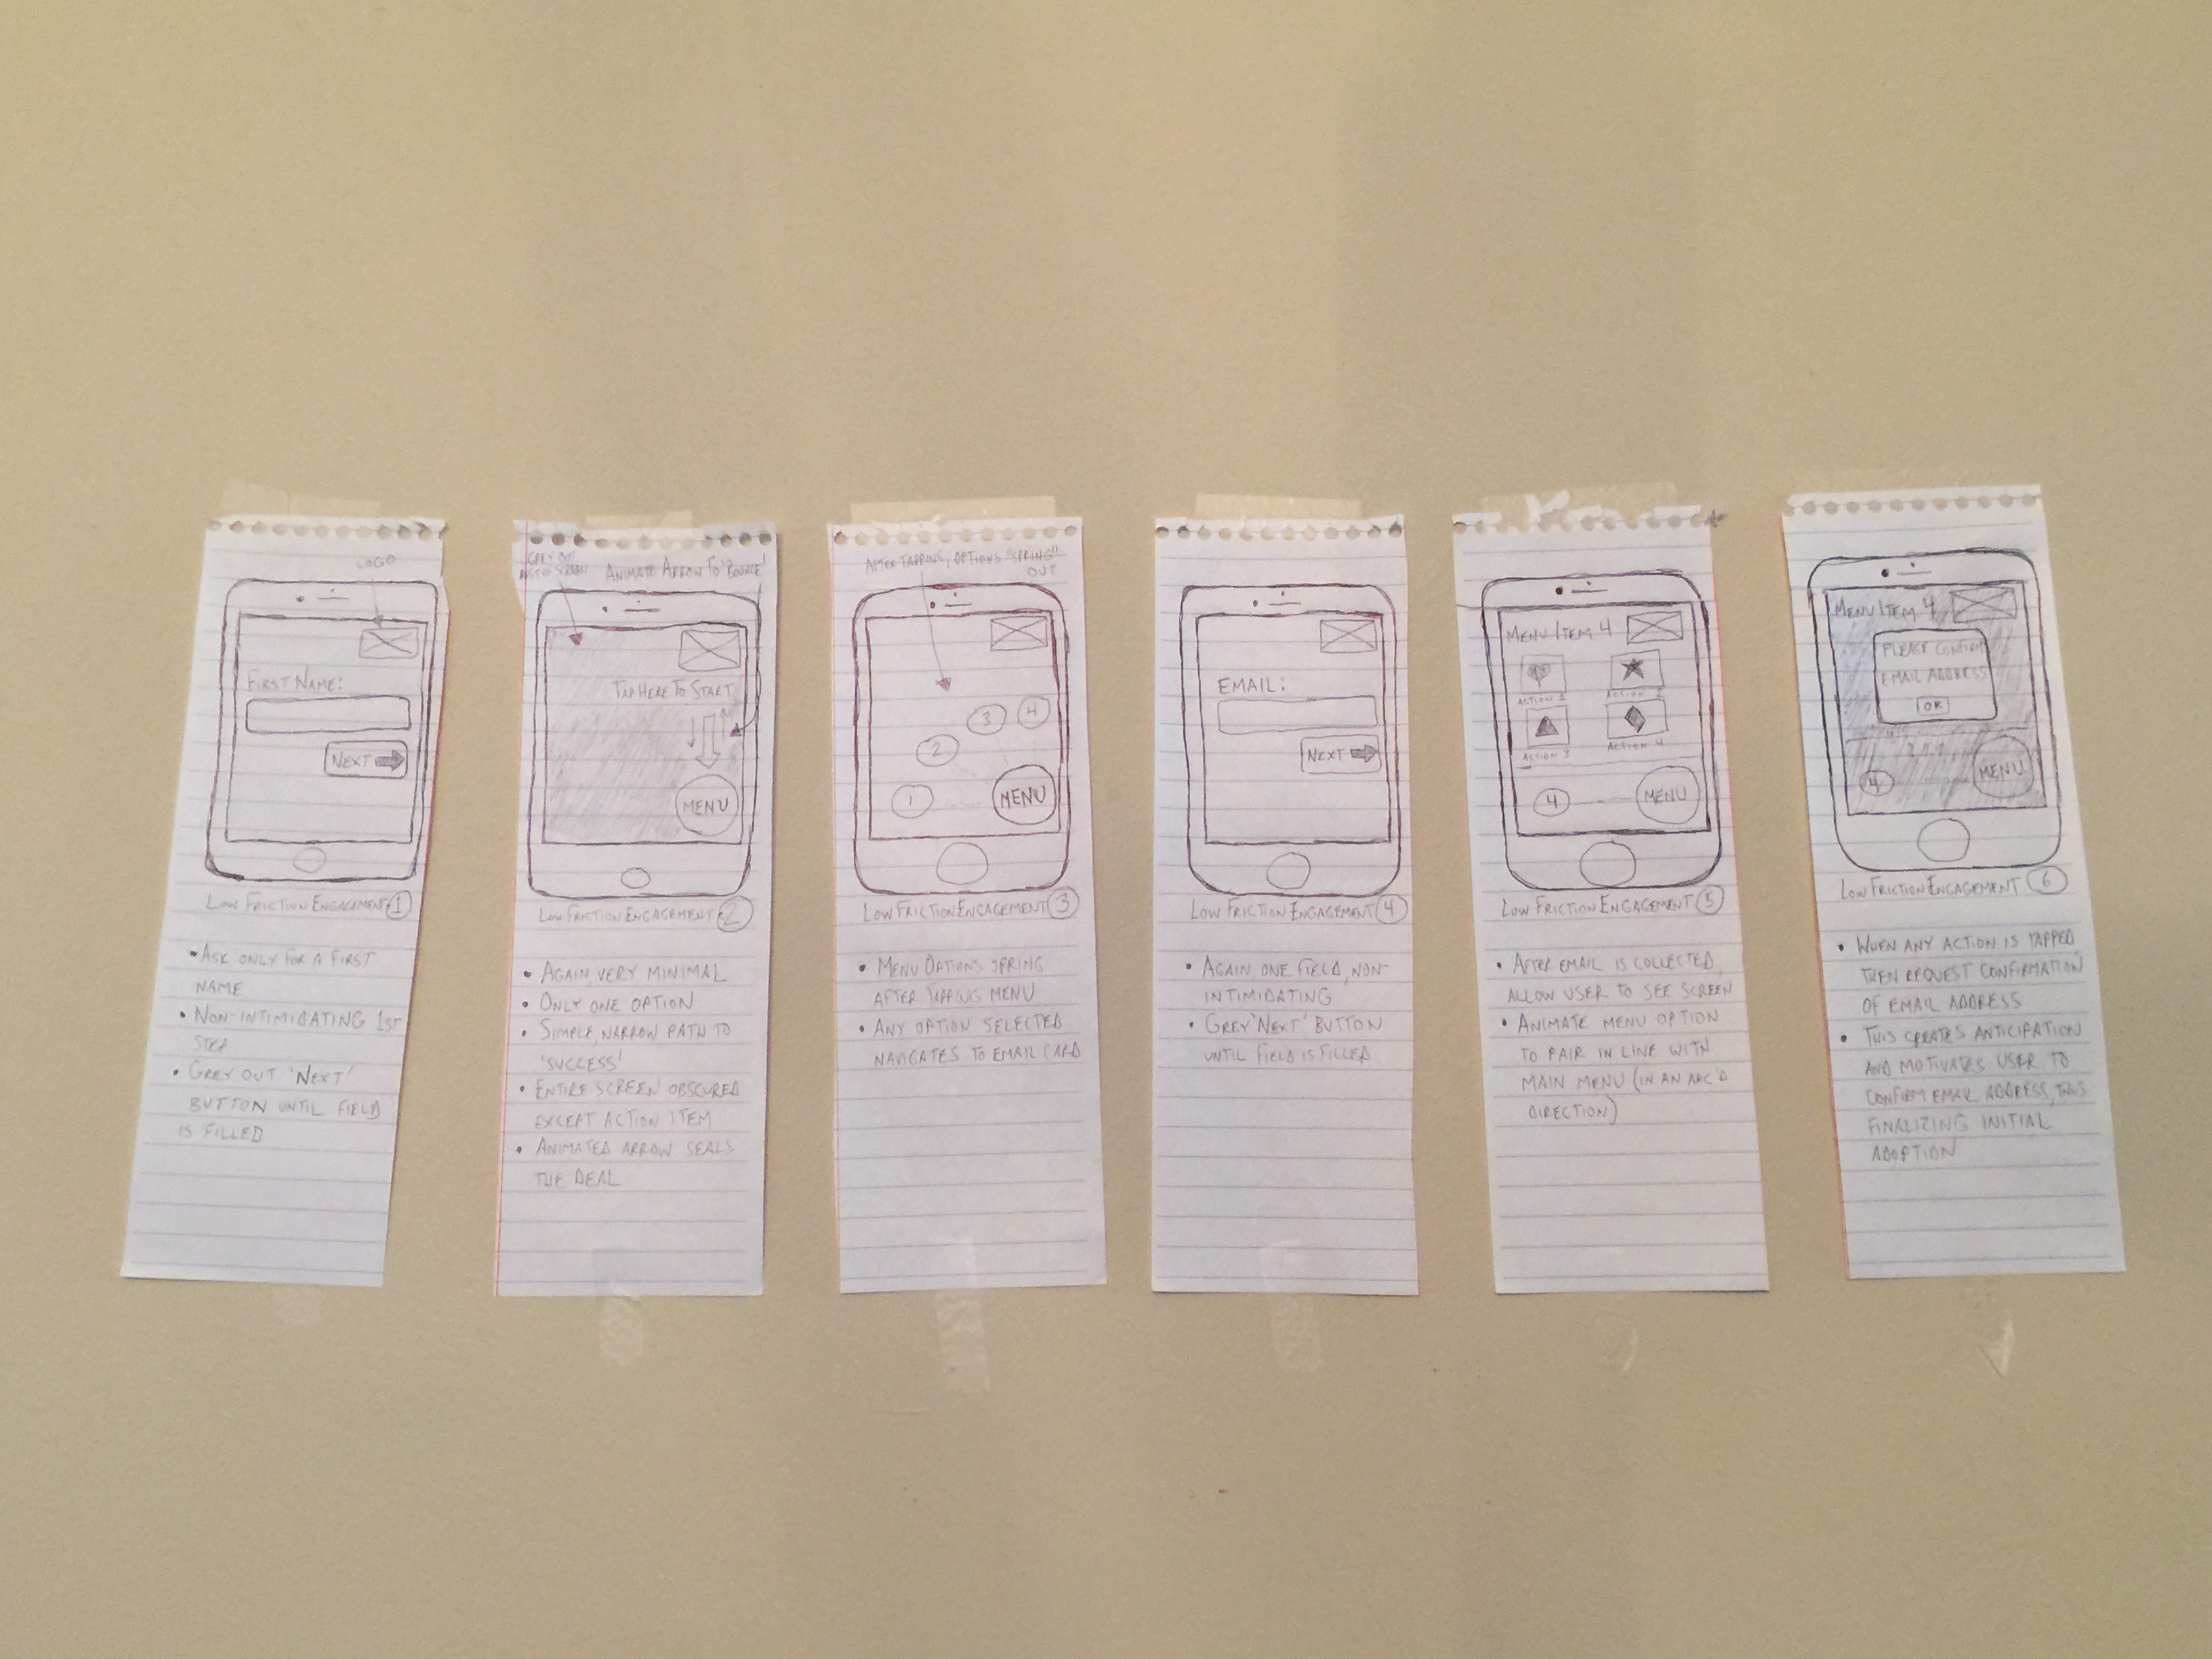 LOGO
FIRST NAME:
NEXT
LOW FRICTION ENGAGEMENT 1
• ASK ONLY FOR A FIRST
NAME
• NON-INTIMIDATING 1ST
STEP
• GREY OUT 'NEXT'
BUTTON UNTIL FIELD
IS FILLED
GREY OUT
REST OF SCREEN
ANIMATE ARROW TO 'BOUNCE'
TAP HERE TO START
MENU
LOW FRICTION ENGAGEMENT 2
• AGAIN, VERY MINIMAL
• ONLY ONE OPTION
• SIMPLE, NARROW PATH TO
'SUCCESS'
• ENTIRE SCREEN OBSCURED
EXCEPT ACTION ITEM
• ANIMATED ARROW SEALS
THE DEAL
AFTER TAPPING, OPTIONS "SPRING"
OUT
3 4
2
1 MENU
LOW FRICTION ENGAGEMENT 3
• MENU OPTIONS SPRING
AFTER TAPPING MENU
• ANY OPTION SELECTED
NAVIGATES TO EMAIL CARD
EMAIL:
NEXT
LOW FRICTION ENGAGEMENT 4
• AGAIN ONE FIELD, NON-
INTIMIDATING
• GREY 'NEXT' BUTTON
UNTIL FIELD IS FILLED
MENU ITEM 4
ACTION 1 ACTION 2
ACTION 3 ACTION 4
4 MENU
LOW FRICTION ENGAGEMENT 5
• AFTER EMAIL IS COLLECTED,
ALLOW USER TO SEE SCREEN
• ANIMATE MENU OPTION
TO PAIR IN LINE WITH
MAIN MENU (IN AN ARC'D
DIRECTION)
MENU ITEM 4
PLEASE CONFIRM
EMAIL ADDRESS
OK
4 MENU
LOW FRICTION ENGAGEMENT 6
• WHEN ANY ACTION IS TAPPED,
THEN REQUEST CONFIRMATION
OF EMAIL ADDRESS
• THIS CREATES ANTICIPATION
AND MOTIVATES USER TO
CONFIRM EMAIL ADDRESS, THUS
FINALIZING INITIAL
ADOPTION